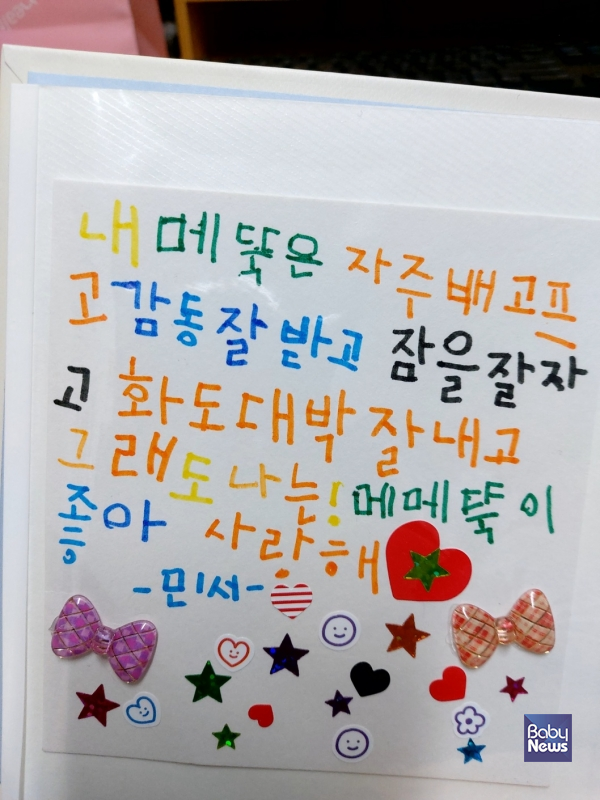 내 메뚝은 자주 배고프
고 감동잘 받고 잠을잘자
고 화도대박 잘내고
그래도 나는! 메메뚝이
좋아 사랑해
-민서-
Baby
News